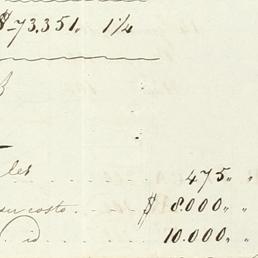 $ 73.351,, 1¼
les . . . . . 475,, ,,
su costo . . . . $ 8.000,, ,,
id . . . . . 10.000,, ,,